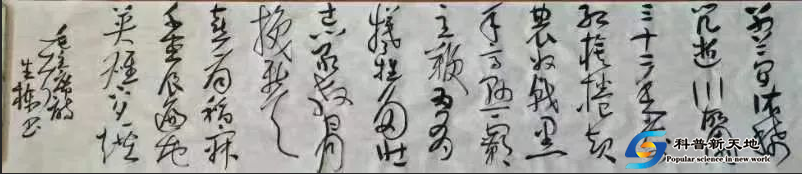 别梦依稀
咒逝川故园
三十二年前
红旗捲起
农奴戟黑
手高悬霸
主鞭为有
牺牲多壮
志敢教日月
换新天
喜看稻菽
千重浪遍地
英雄下夕烟
毛主席诗
生栋书
科普新天地
Popular science in new world